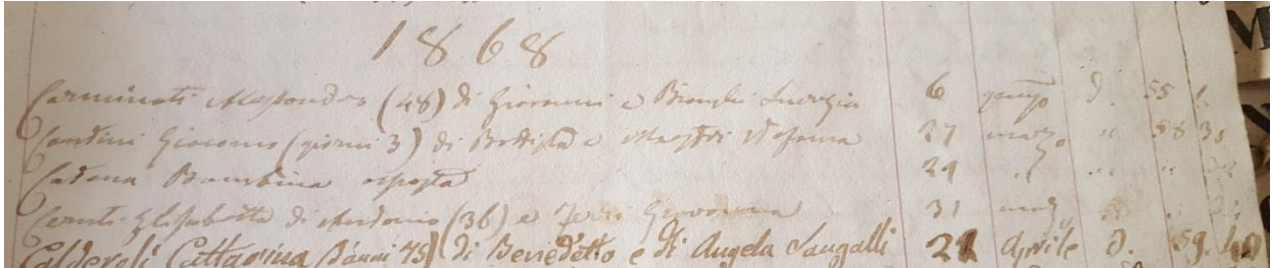 1868
Carminati Alessandro (48) di Giovanni e Brembi Lucrezia 6 d. 55
Cantini Giacomo (giorni 3) di Battista e Maestri 27 marzo " 58
Cadena Bambina esposta 29 " " "
Ceruti Elisabetta di Antonio (36) e Terzi Giovanna 31 "
Calderoli Cattarina D'anni 45) di Benedetto e di Angela Sangalli 21 Aprile d. 59.